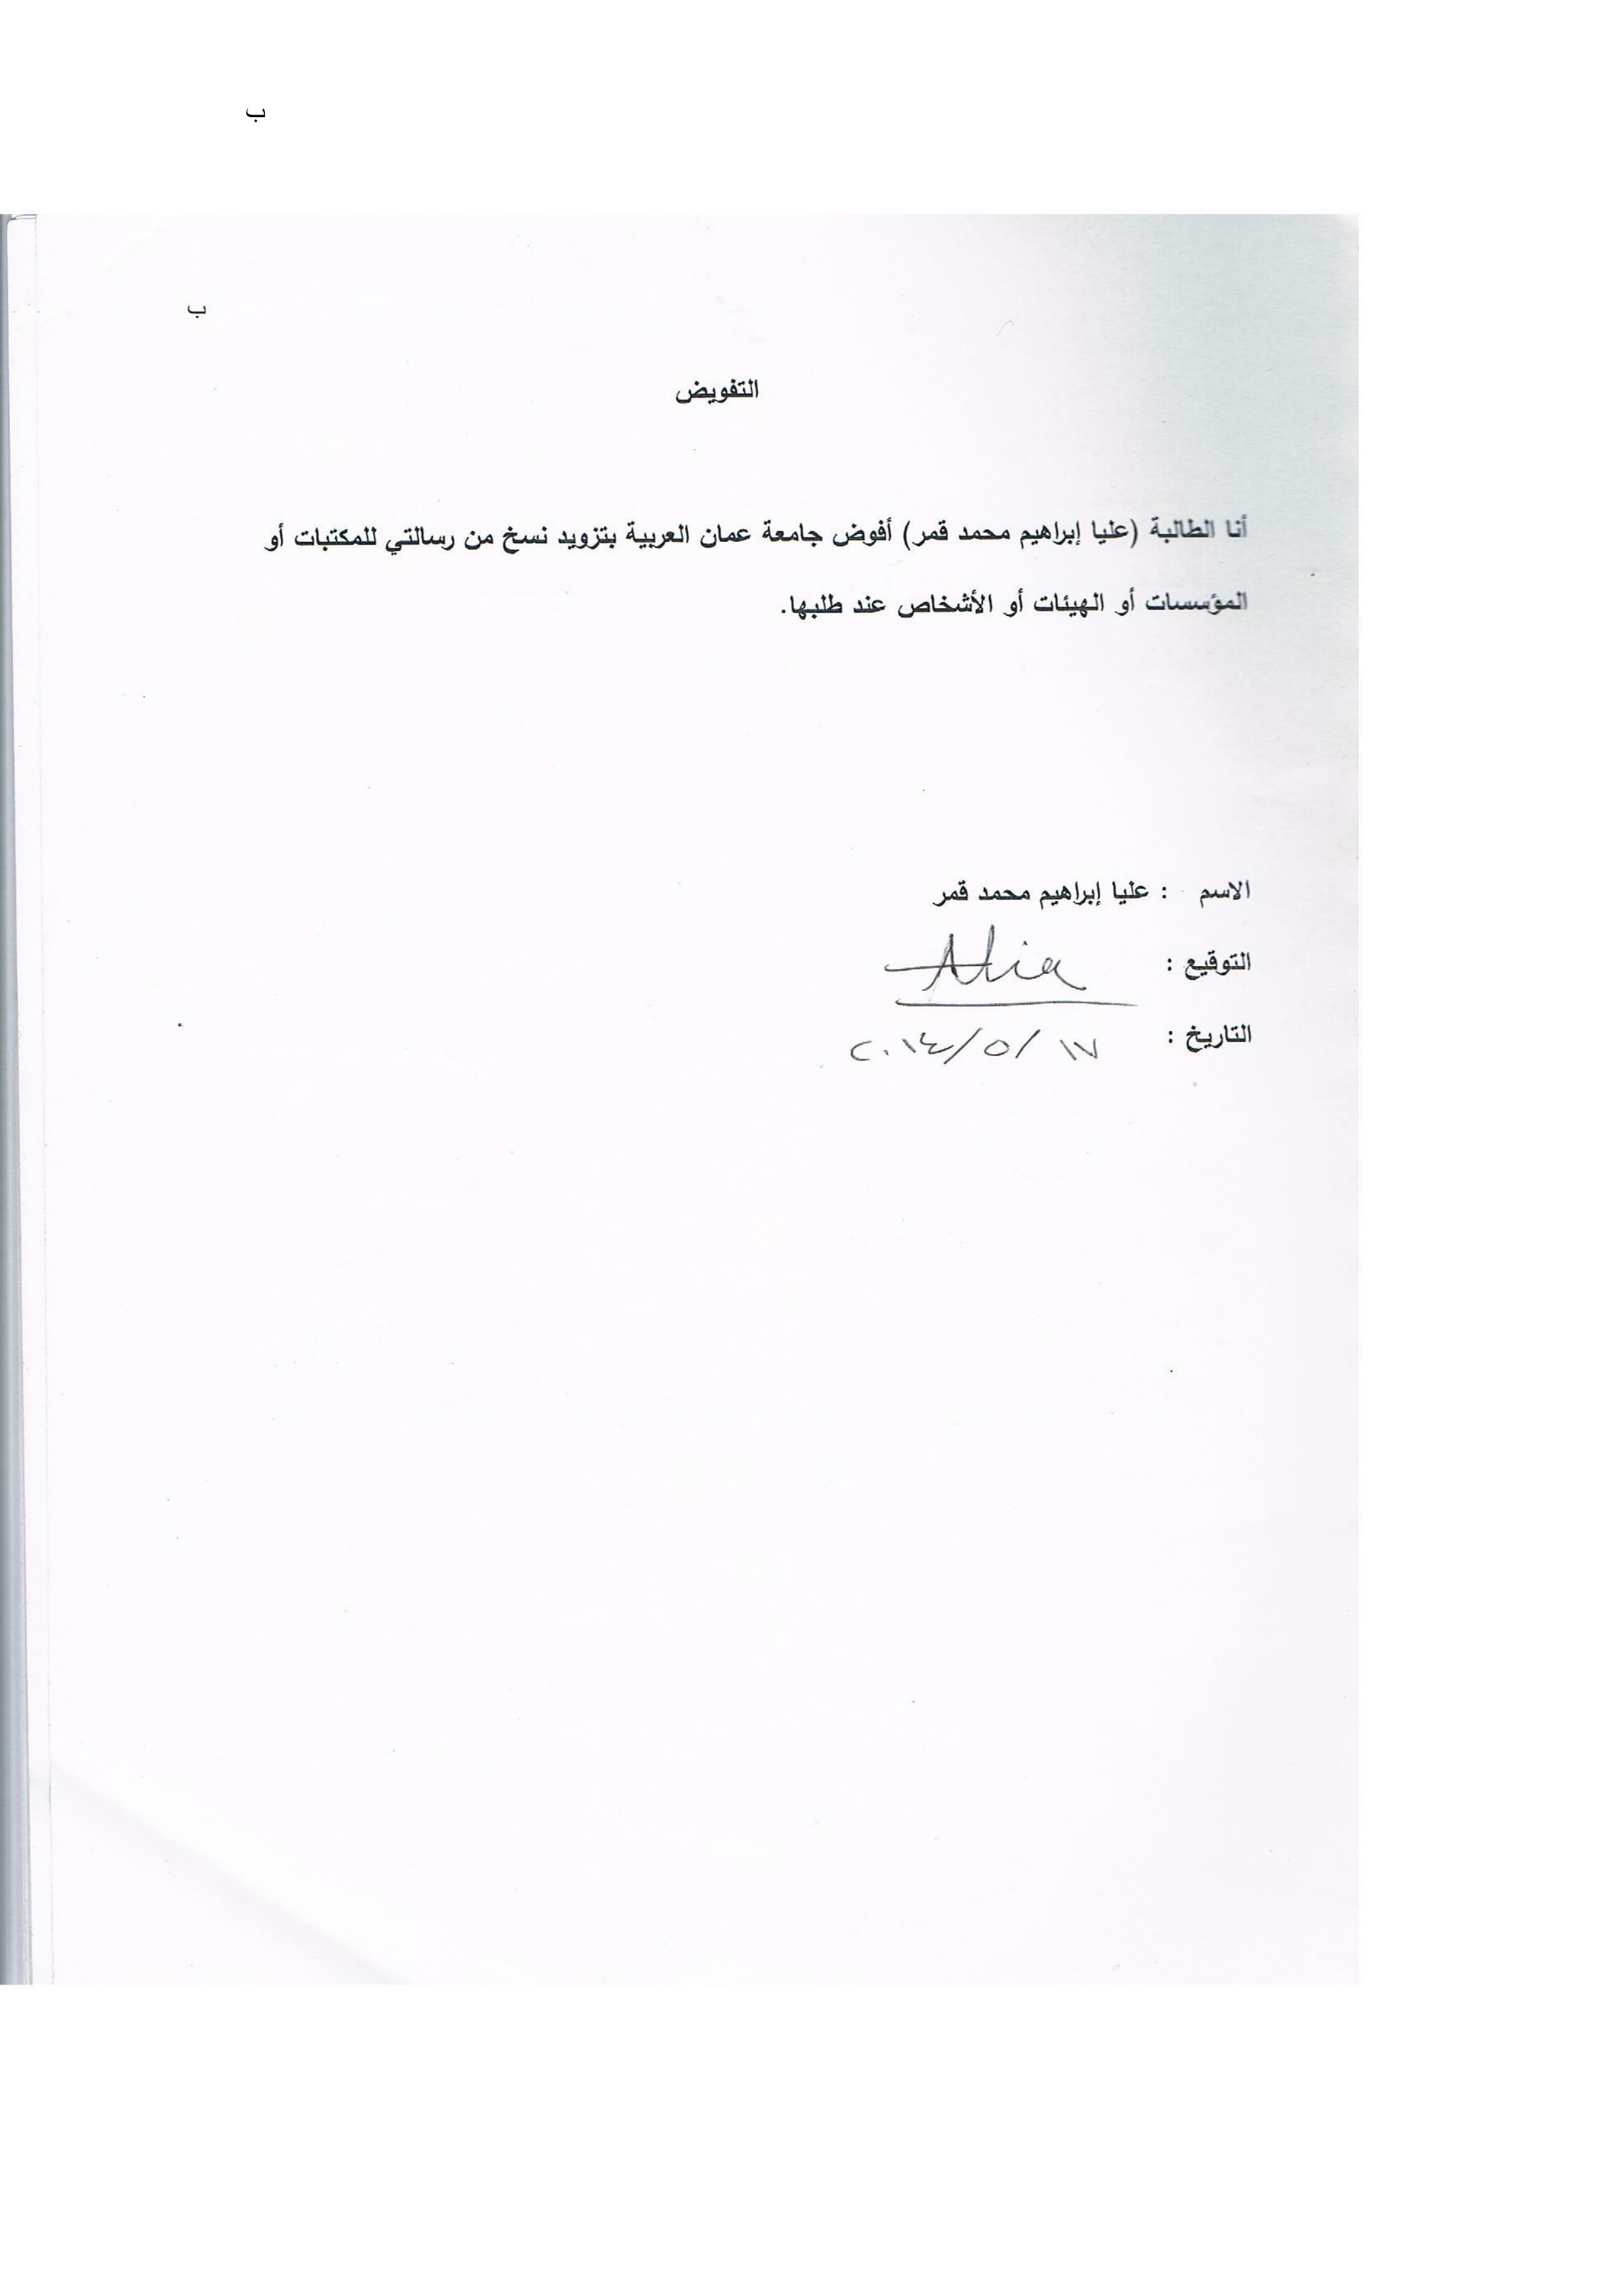 ب
ب
التفويض
أنا الطالبة (عليا إبراهيم محمد قمر) أفوض جامعة عمان العربية بتزويد نسخ من رسالتي للمكتبات أو
المؤسسات أو الهيئات أو الأشخاص عند طلبها.
الاسم : عليا إبراهيم محمد قمر
التوقيع : Alia
التاريخ : ١٧ /٥ /٢٠١٤